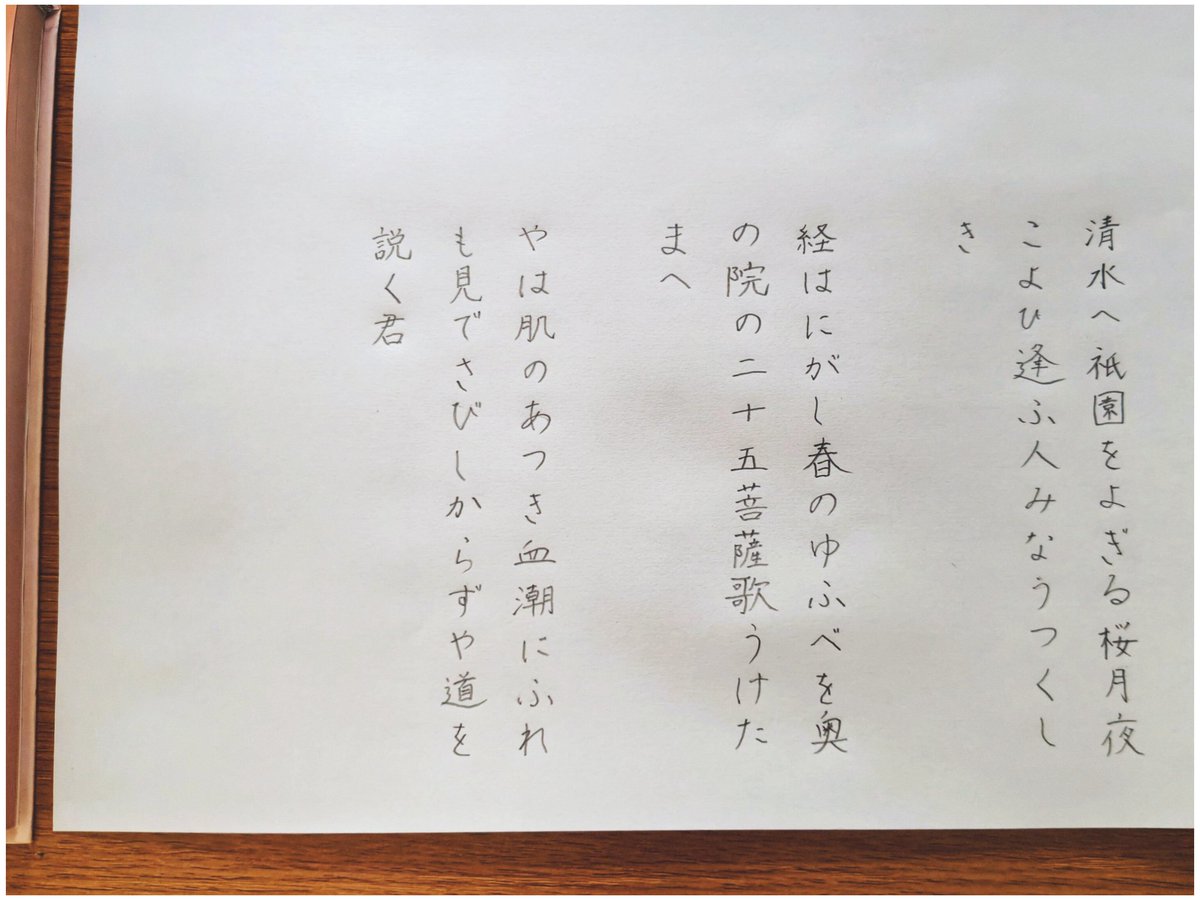 清水へ祇園をよぎる桜月夜
こよひ逢ふ人みなうつくし
き
経はにがし春のゆふべを奥
の院の二十五菩薩歌うけた
まへ
やは肌のあつき血潮にふれ
も見でさびしからずや道を
説く君